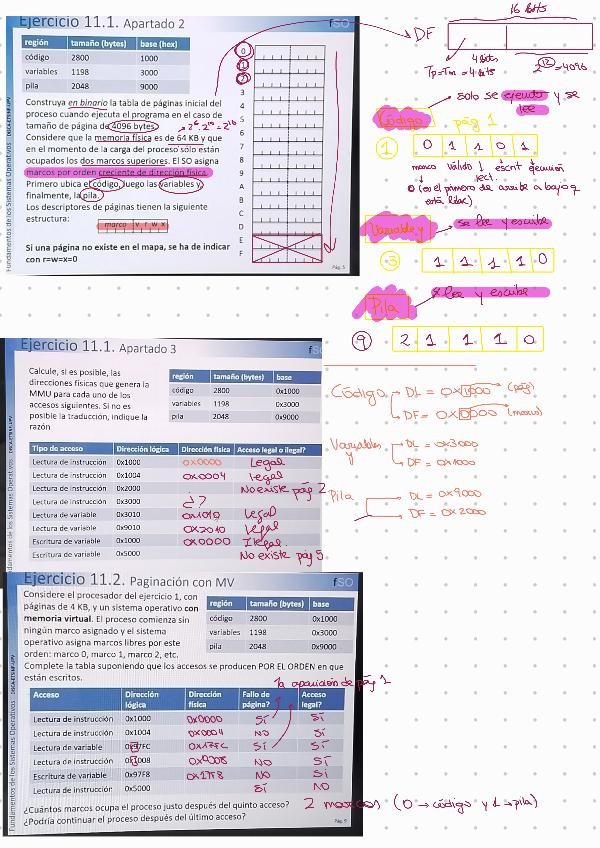 Ejercicio 11.1. Apartado 2
fSO
región tamaño (bytes) base (hex)
código 2800 1000
variables 1198 3000
pila 2048 9000
Construya en binario la tabla de páginas inicial del
proceso cuando ejecuta el programa en el caso de
tamaño de página de 4096 bytes.
Considere que la memoria física es de 64 KB y que
en el momento de la carga del proceso sólo están
ocupados los dos marcos superiores. El SO asigna
marcos por orden creciente de dirección física.
Primero ubica el código, luego las variables y,
finalmente, la pila.
Los descriptores de páginas tienen la siguiente
estructura:
marco v r w x
Si una página no existe en el mapa, se ha de indicar
con r=w=x=0
Fundamentos de los Sistemas Operativos
0
1
2
3
4
5
6
7
8
9
A
B
C
D
E
F
Pág. 5
16 bits
DF
4 bits
2^12 = 4096
solo se ejecuta y se
lee
Código
pág 1
1
0 1 1 0 1
marco válido
0 (es el primero de arriba a abajo q
está libre)
Variable y
se lee y escribe
3
1 1 1 1 0
Pila
lee y escribe
9
2 1 1 1 0
Ejercicio 11.1. Apartado 3
fSO
Calcule, si es posible, las
direcciones físicas que genera la
MMU para cada uno de los
accesos siguientes. Si no es
posible la traducción, indique la
razón
región tamaño (bytes) base
código 2800 0x1000
variables 1198 0x3000
pila 2048 0x9000
Tipo de acceso Dirección lógica Dirección física Acceso legal o ilegal?
Lectura de instrucción 0x1000 0x0000 Legal
Lectura de instrucción 0x1004 0x0004 legal
Lectura de instrucción 0x2000 No existe pág 2
Lectura de instrucción 0x3000 ¿?
Lectura de variable 0x3010 0x1010 Legal
Lectura de variable 0x9010 0x2010 Legal
Escritura de variable 0x1000 0x0000 Ilegal
Escritura de variable 0x5000 No existe pág 5
Código DL = 0x1000 (pág)
DF = 0x0000 (marco)
Variables y DL = 0x3000
DF = 0x1000
Pila DL = 0x9000
DF = 0x2000
Ejercicio 11.2. Paginación con MV
fSO
Considere el procesador del ejercicio 1, con
páginas de 4 KB, y un sistema operativo con
memoria virtual. El proceso comienza sin
ningún marco asignado y el sistema
operativo asigna marcos libres por este
orden: marco 0, marco 1, marco 2, etc.
región tamaño (bytes) base
código 2800 0x1000
variables 1198 0x3000
pila 2048 0x9000
Complete la tabla suponiendo que los accesos se producen POR EL ORDEN en que
están escritos.
1a aparición de pág 1
Acceso Dirección lógica Dirección física Fallo de página? Acceso legal?
Lectura de instrucción 0x1000 0x0000 SÍ SÍ
Lectura de instrucción 0x1004 0x0004 NO SÍ
Lectura de variable 0x97FC 0x17FC SÍ SÍ
Lectura de instrucción 0x1008 0x0008 NO SÍ
Escritura de variable 0x97F8 0x17F8 NO SÍ
Lectura de instrucción 0x5000 SÍ NO
¿Cuántos marcos ocupa el proceso justo después del quinto acceso? 2 marcos (0 → código y 1 → pila)
¿Podría continuar el proceso después del último acceso?
Pág. 9